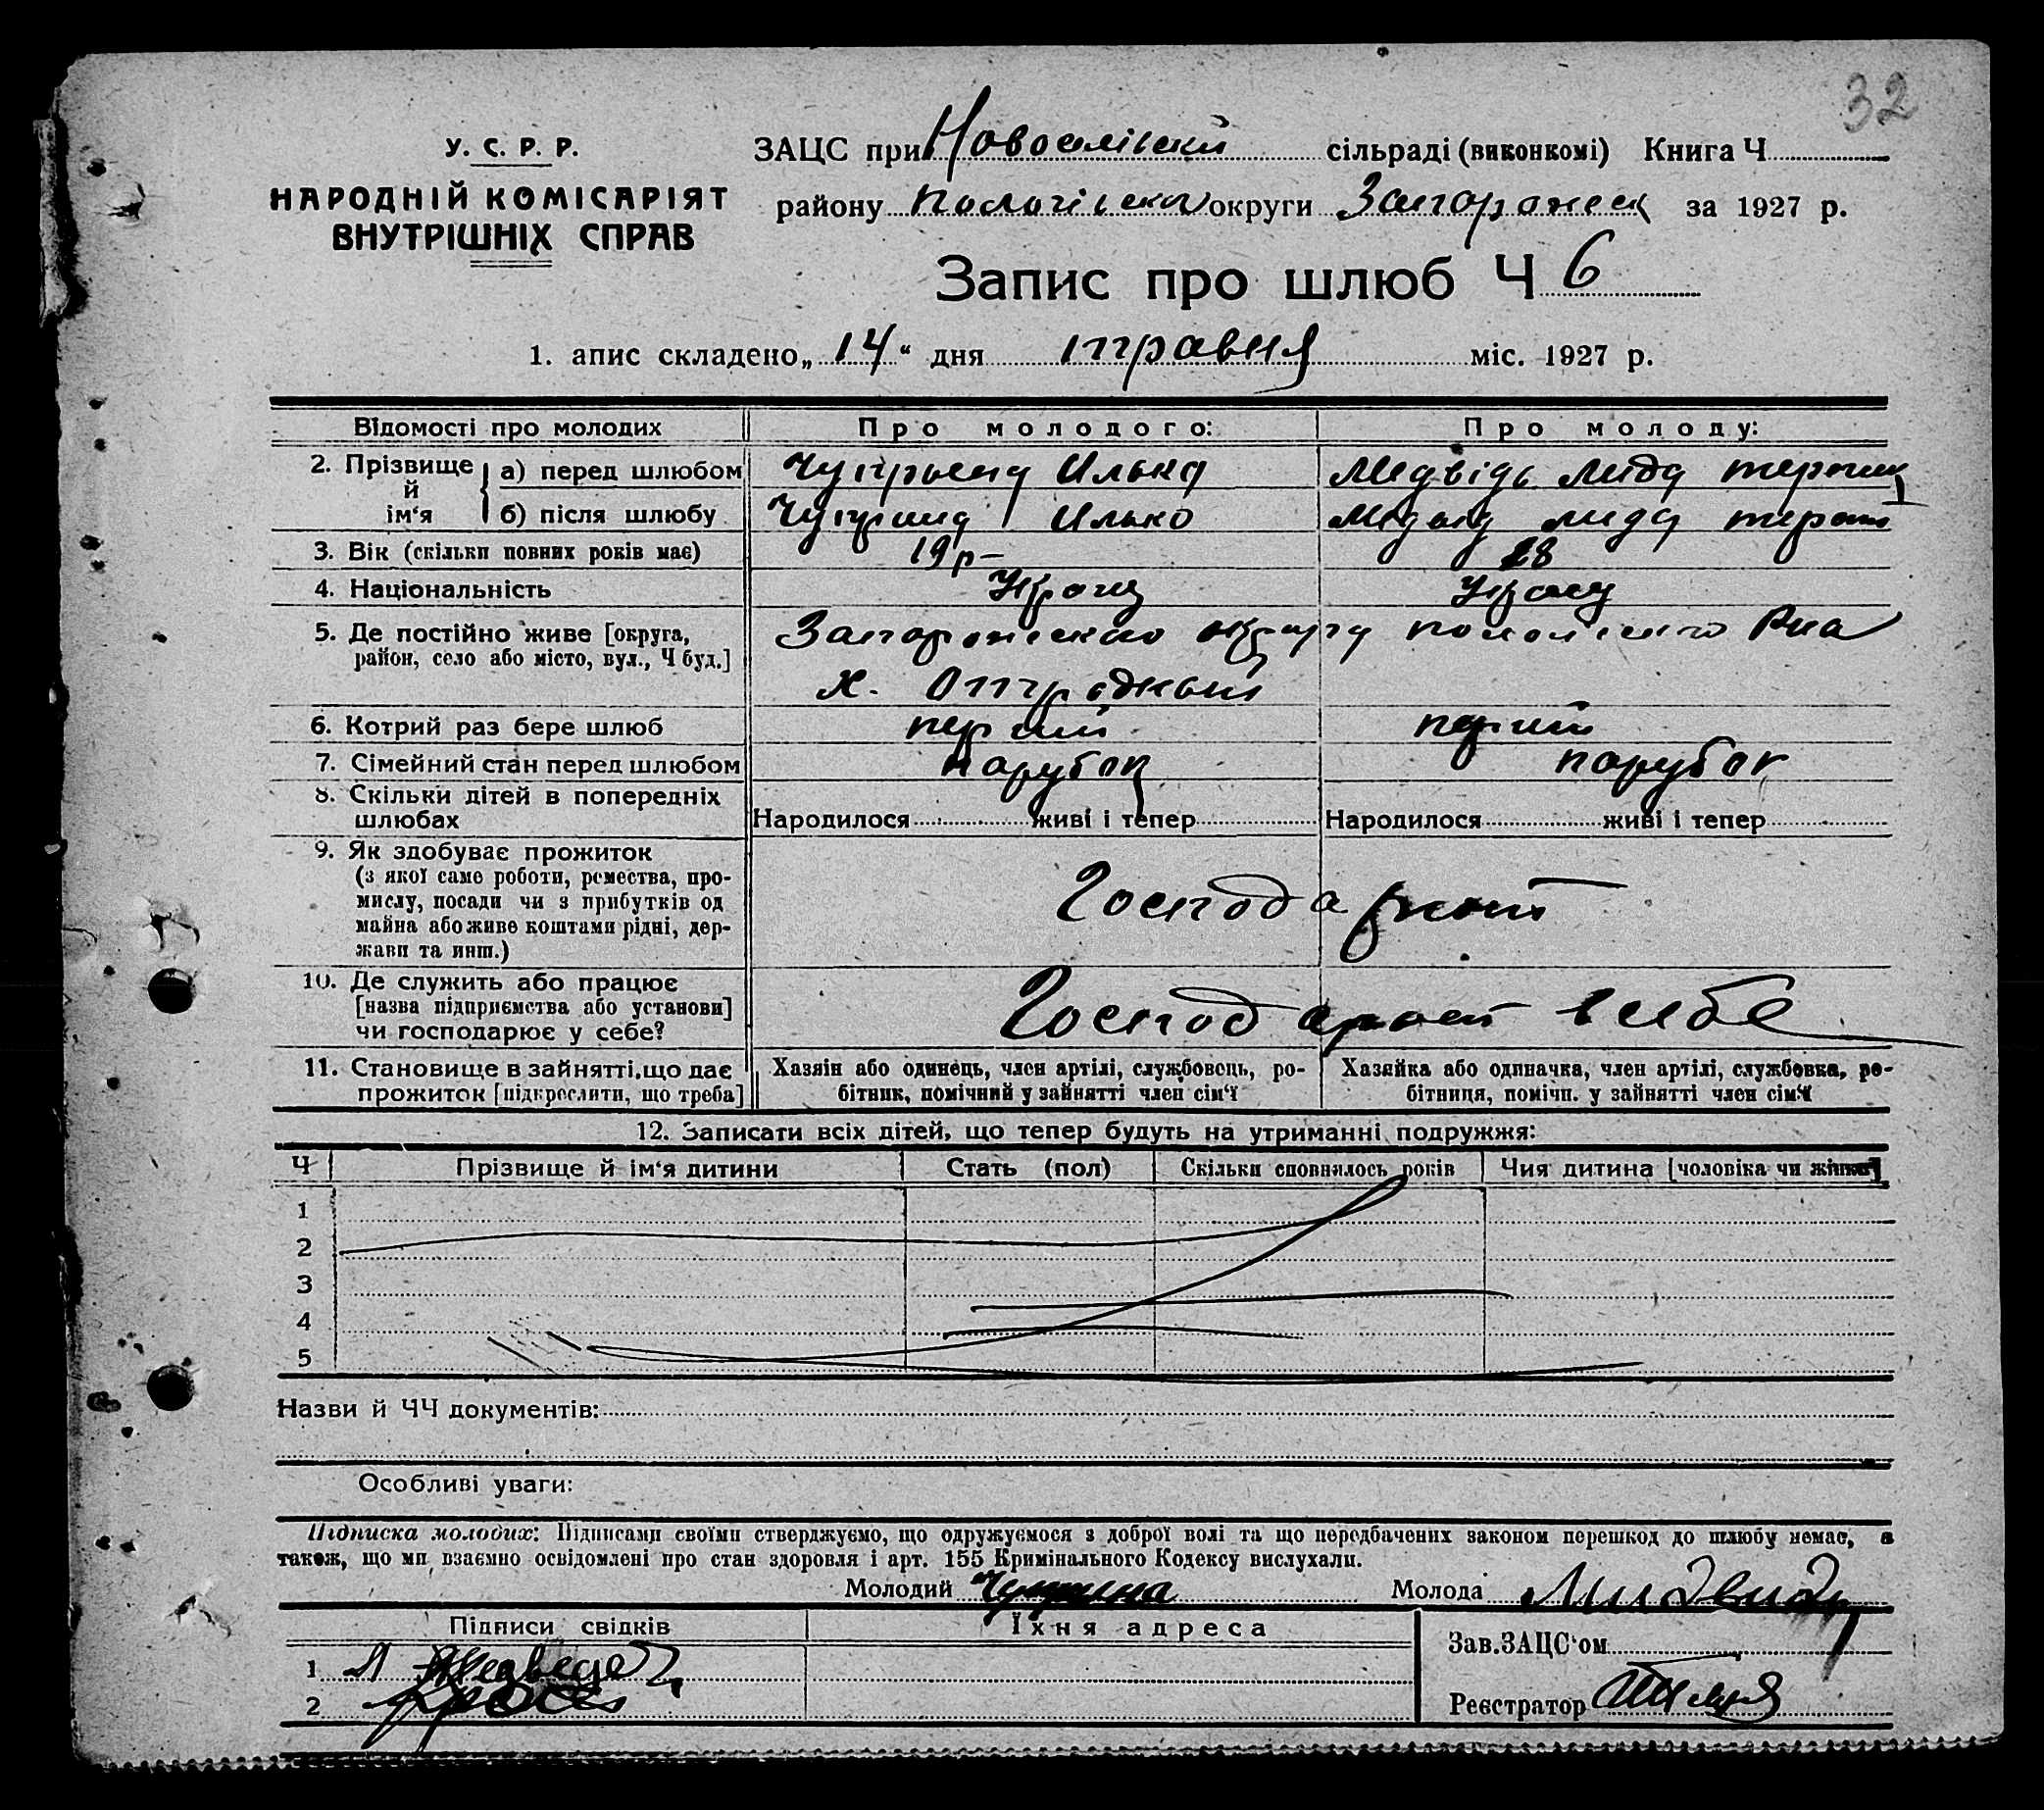 32
У. С. Р. Р.
НАРОДНІЙ КОМІСАРІЯТ
ВНУТРІШНІХ СПРАВ
ЗАЦС при Новоселівській сільраді (виконкомі) Книга Ч
району округи Запоріжск за 1927 р.
Запис про шлюб Ч 6
1. апис складено „14“ дня травня міс. 1927 р.
Відомості про молодих
Про молодого:
Про молоду:
2. Прізвище й ім‘я
а) перед шлюбом
Илько
Медвідь Лида
б) після шлюбу
Илько
Лида
3. Вік (скільки повних років має)
19 р
4. Національність
5. Де постійно живе [округа,
район, село або місто, вул., Ч буд.]
х. Отградный
6. Котрий раз бере шлюб
перший
перший
7. Сімейний стан перед шлюбом
парубок
парубок
8. Скільки дітей в попередніх
шлюбах
Народилося живі і тепер
Народилося живі і тепер
9. Як здобуває прожиток
(з якої саме роботи, ремества, про-
мислу, посади чи з прибутків од
майна або живе коштами рідні, дер-
жави та инш.)
10. Де служить або працює
[назва підприємства або установи]
чи господарює у себе?
в себе
11. Становище в зайнятті, що дає
прожиток [підкреслити, що треба]
Хазяін або одинець, член артілі, службовець, ро-
бітник, помічний у зайнятті член сім‘ї
Хазяйка або одиначка, член артілі, службовка, ро-
бітниця, помічн. у зайнятті член сім‘ї
12. Записати всіх дітей, що тепер будуть на утриманні подружжя:
Ч
Прізвище й ім‘я дитини
Стать (пол)
Скільки сповнилось років
Чия дитина [чоловіка чи жінки]
1
2
3
4
5
Назви й ЧЧ документів:
Особливі уваги:
Підписка молодих: Підписами своїми стверджуємо, що одружуємося з доброї волі та що передбачених законом перешкод до шлюбу немає, а
також, що ми взаємно освідомлені про стан здоровля і арт. 155 Кримінального Кодексу вислухали.
Молодий
Молода
Підписи свідків
Їхня адреса
1
2
Зав.ЗАЦС‘ом
Реєстратор